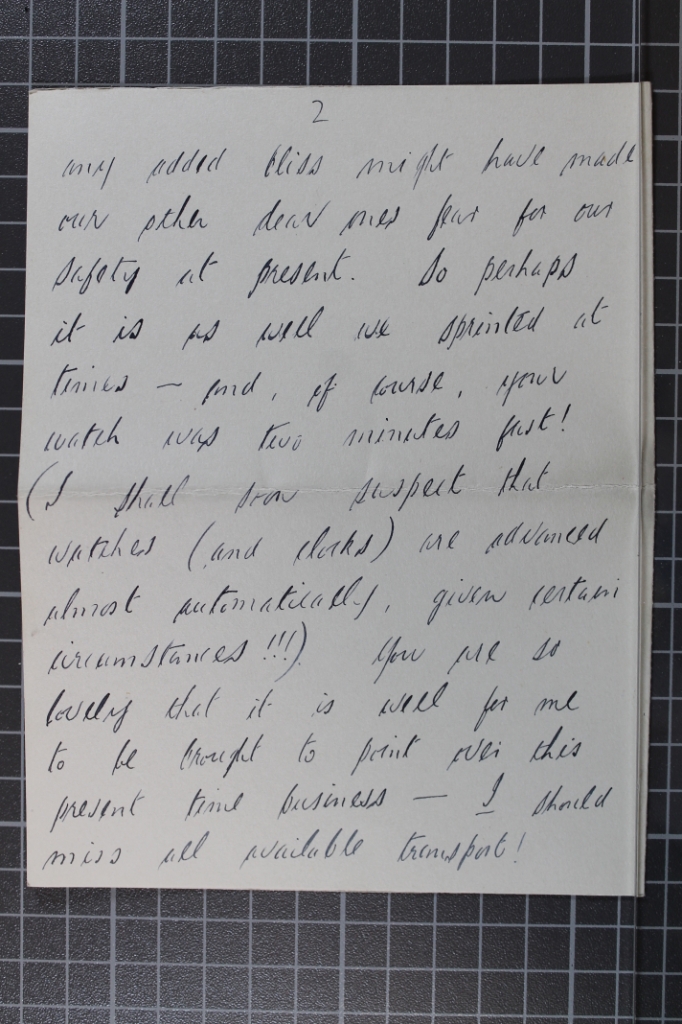 2
any added bliss might have made
our other dear ones fear for our
safety at present. So perhaps
it is as well we sprinted at
times — and, of course, your
watch was two minutes fast!
(I shall soon suspect that
watches (and clocks) are advanced
almost automatically, given certain
circumstances!!!) You are so
lovely that it is well for me
to be brought to point over this
present time business — I should
miss all available transport!